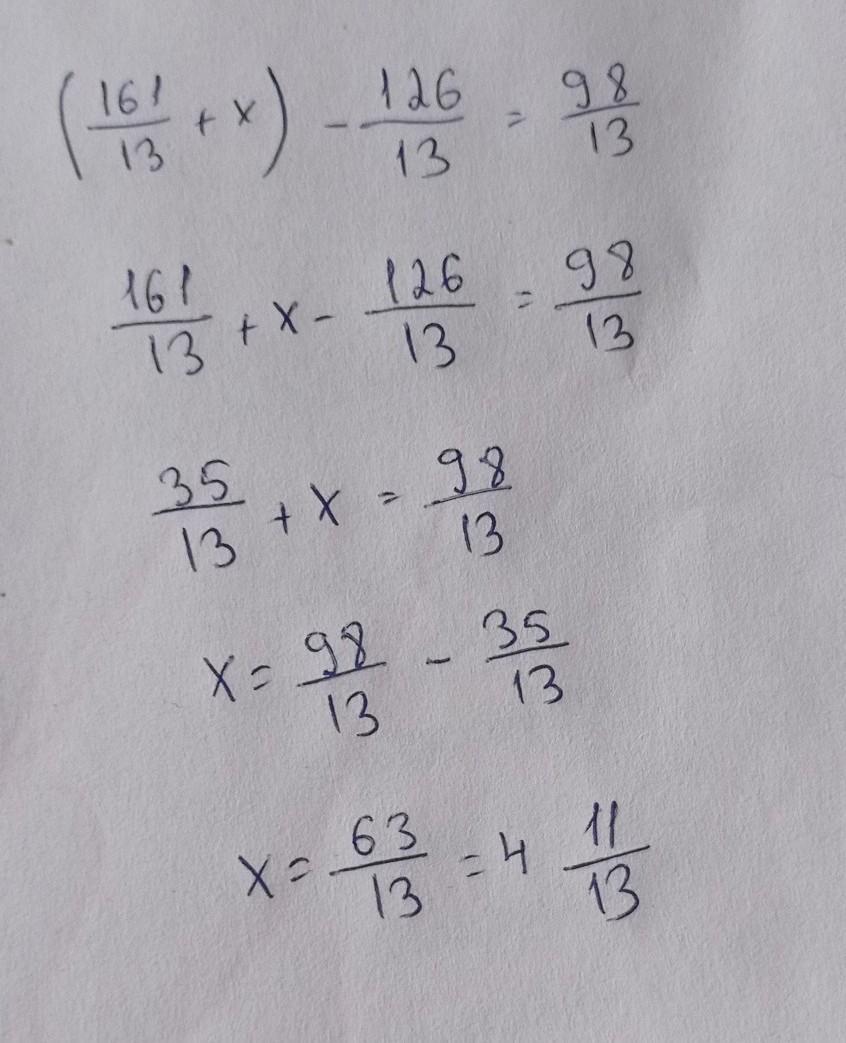 (161/13 + x) - 126/13 = 98/13
161/13 + x - 126/13 = 98/13
35/13 + x = 98/13
x = 98/13 - 35/13
x = 63/13 = 4 11/13